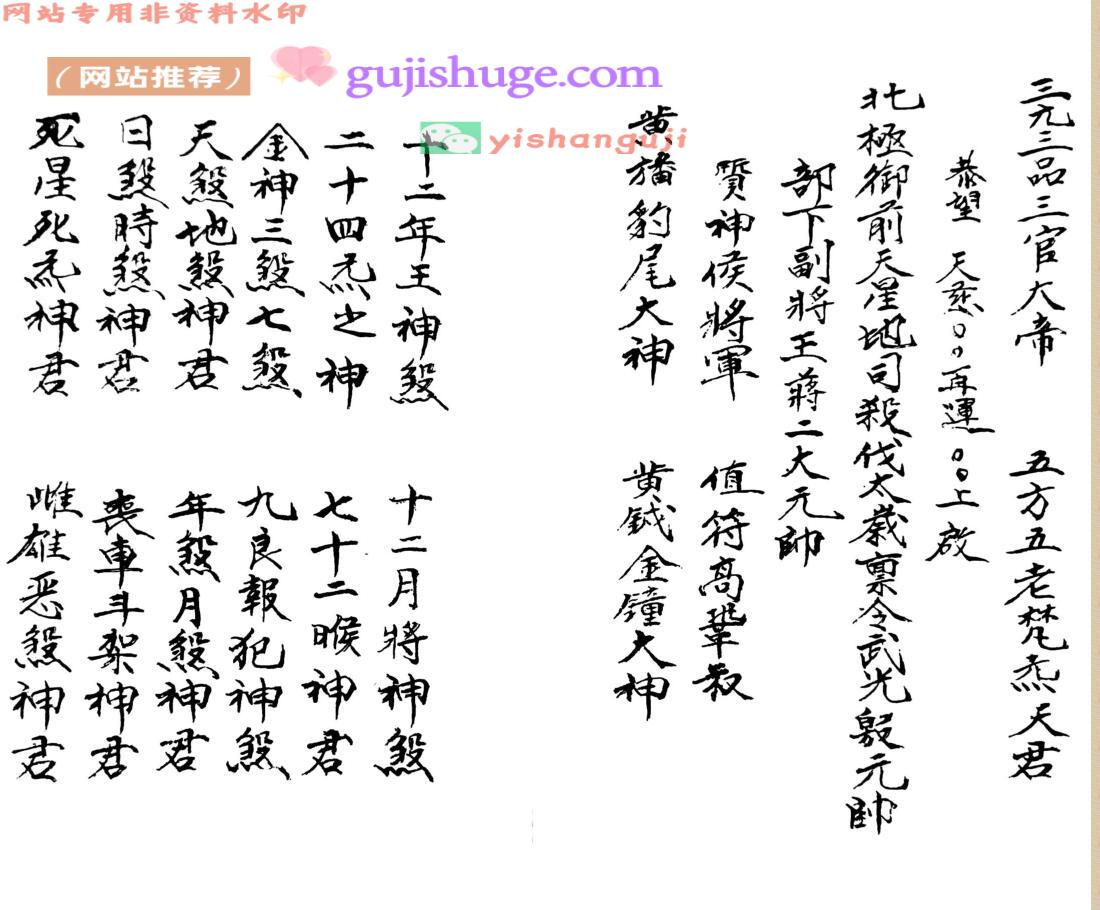 网站专用非资料水印
（网站推荐）
gujishuge.com
yishanguji
三元三品三官大帝　五方五老梵炁天君
恭望　天慈○○再運○○上啟
北極御前天星地司殺伐太歲稟令武光殷元帥
部下副將王蔣二大元帥
賛神侯將軍　值符高鞏
黄旛豹尾大神　黄鉞金鐘大神
十二年王神煞　十二月將神煞
二十四炁之神　七十二睺神君
金神三煞七煞　九良報犯神煞
天煞地煞神君　年煞月煞神君
日煞時煞神君　喪車斗架神君
死星死炁神君　雌雄恶煞神君